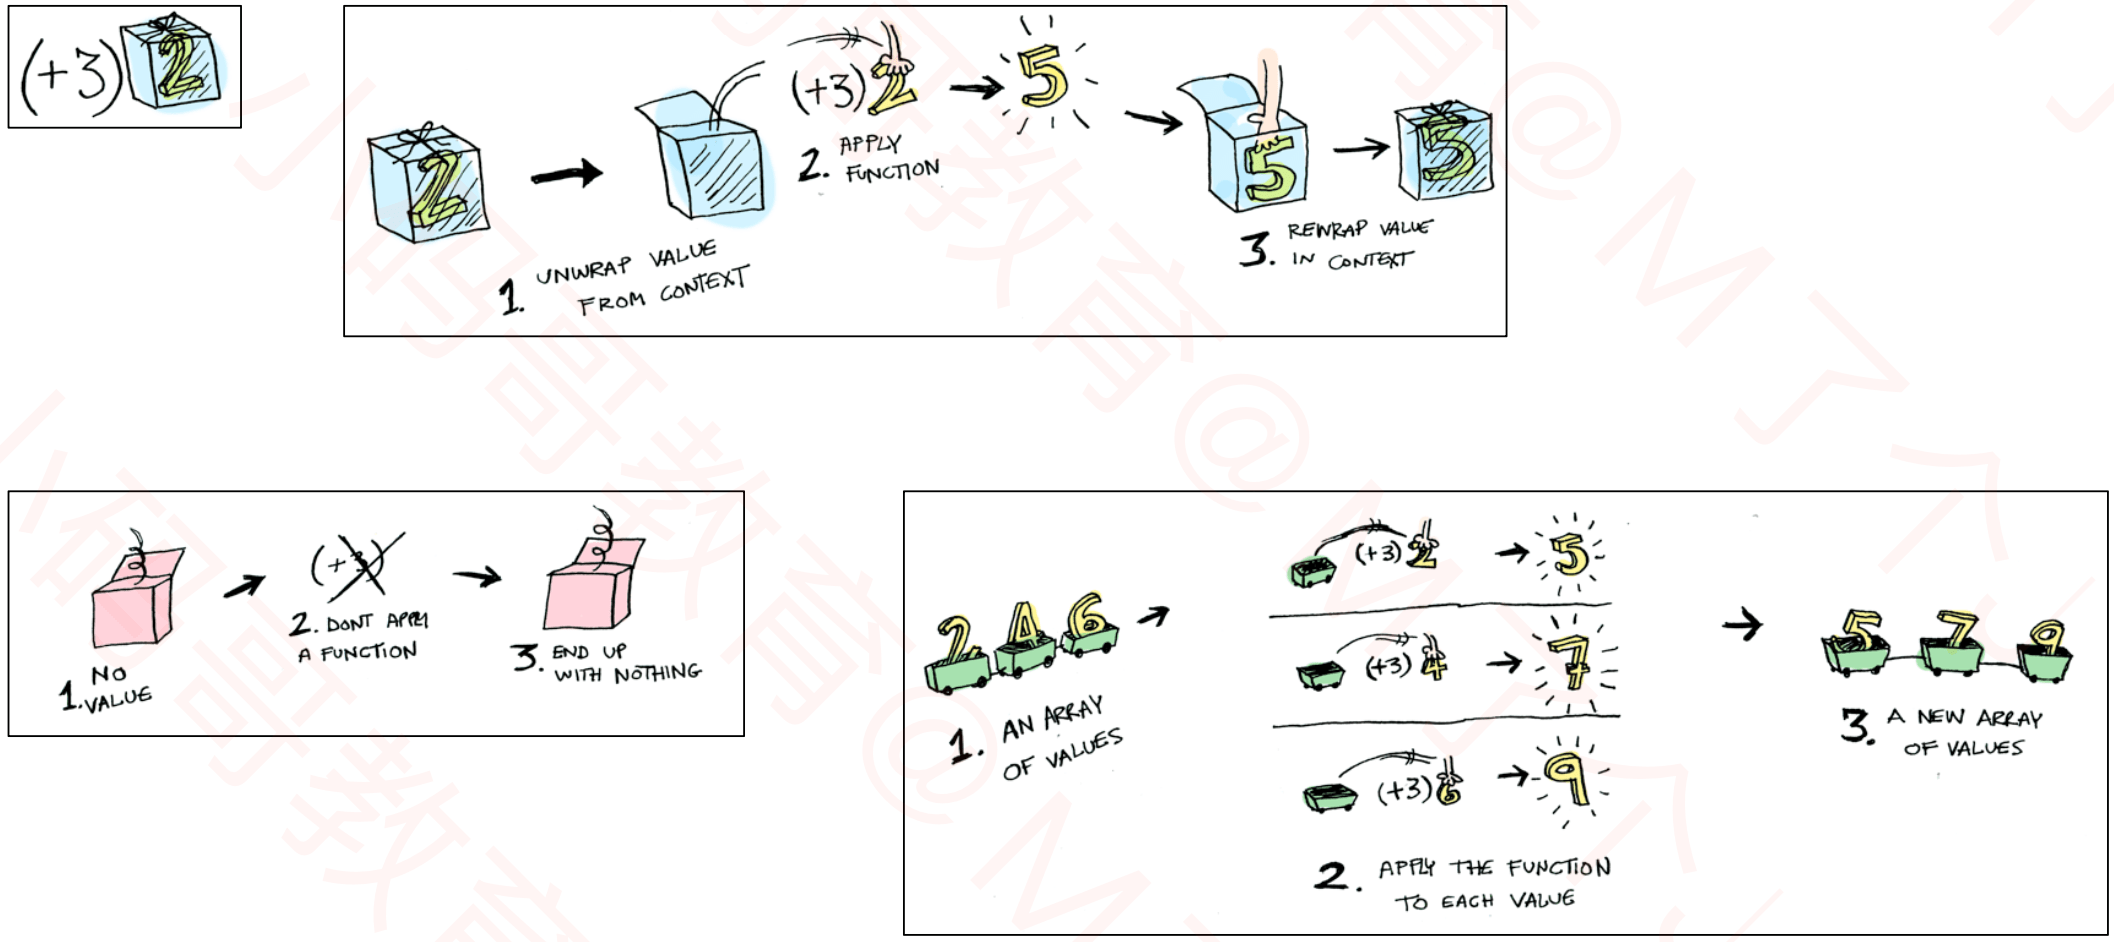 (+3) 2
2
1. UNWRAP VALUE
FROM CONTEXT
(+3) 2
5
2. APPLY
FUNCTION
5
5
3. REWRAP VALUE
IN CONTEXT
1. NO
VALUE
(+3)
2. DONT APPLY
A FUNCTION
3. END UP
WITH NOTHING
2 4 6
1. AN ARRAY
OF VALUES
(+3) 2 5
(+3) 4 7
(+3) 6 9
2. APPLY THE FUNCTION
TO EACH VALUE
5 7 9
3. A NEW ARRAY
OF VALUES
小码哥教育@M了个
小码哥教育@M了个